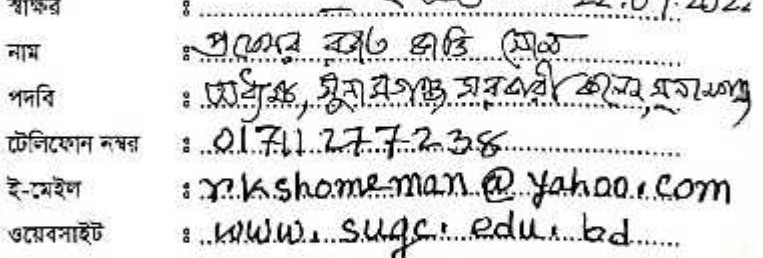 স্বাক্ষর : 22.09.2022
নাম : প্রফেসর রজত কান্তি সোম
পদবি : অধ্যক্ষ, সুনামগঞ্জ সরকারী কলেজ, সুনামগঞ্জ
টেলিফোন নম্বর : 01711277238
ই-মেইল : rkshomeman@yahoo.com
ওয়েবসাইট : www.sugc.edu.bd